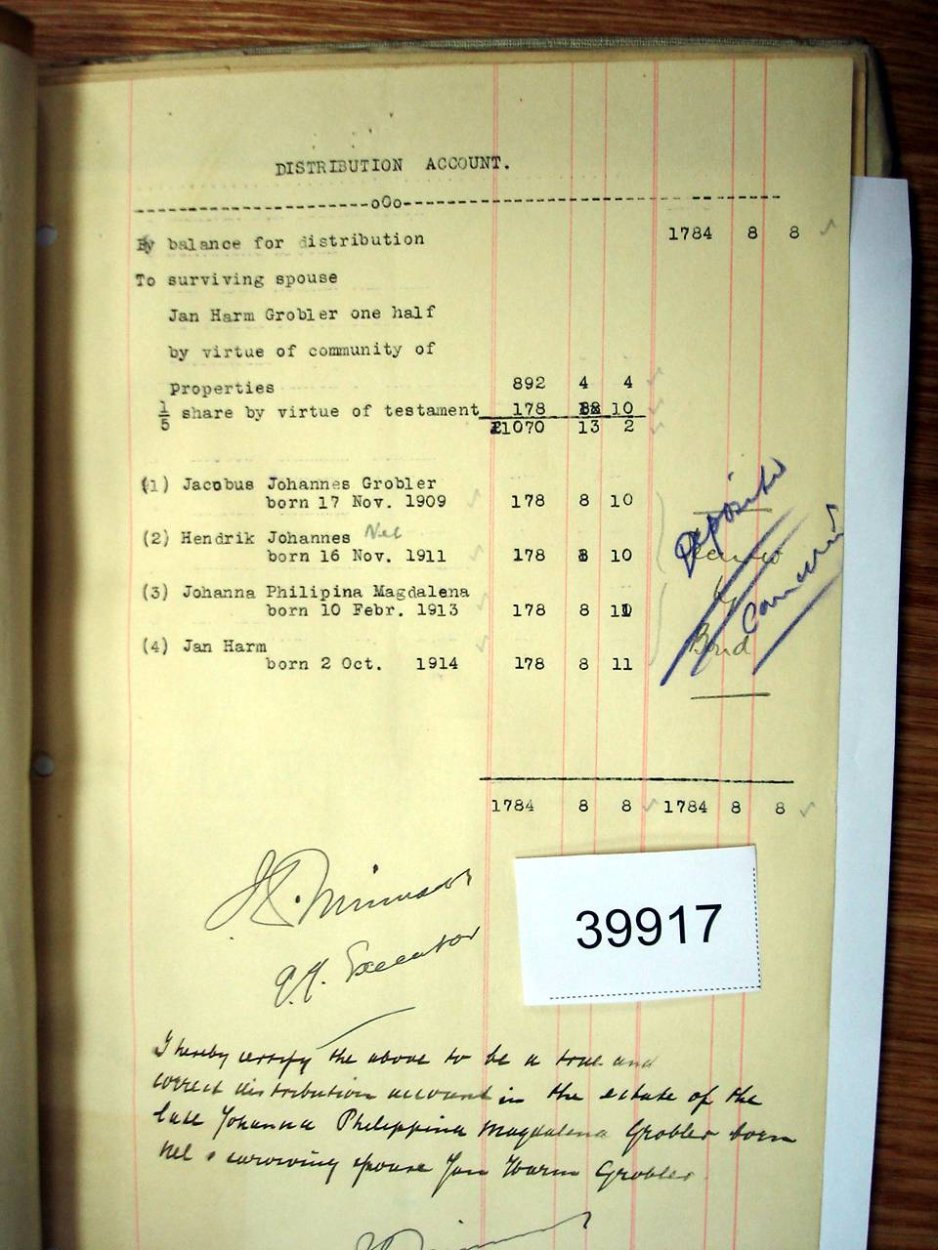 DISTRIBUTION ACCOUNT.
--------------------oOo--------------------------------
By balance for distribution 1784 8 8
To surviving spouse
Jan Harm Grobler one half
by virtue of community of
Properties 892 4 4
1/5 share by virtue of testament 178 10
£1070 13 2
(1) Jacobus Johannes Grobler
born 17 Nov. 1909 178 8 10
(2) Hendrik Johannes Nel
born 16 Nov. 1911 178 8 10
(3) Johanna Philipina Magdalena
born 10 Febr. 1913 178 8 11
(4) Jan Harm
born 2 Oct. 1914 178 8 11
Deposited
Secured
by
Bond
1784 8 8 1784 8 8
q.q. Executor
39917
I hereby certify the above to be a true and
correct distribution account in the estate of the
late Johanna Philippina Magdalena Grobler born
Nel & surviving spouse Jan Harm Grobler